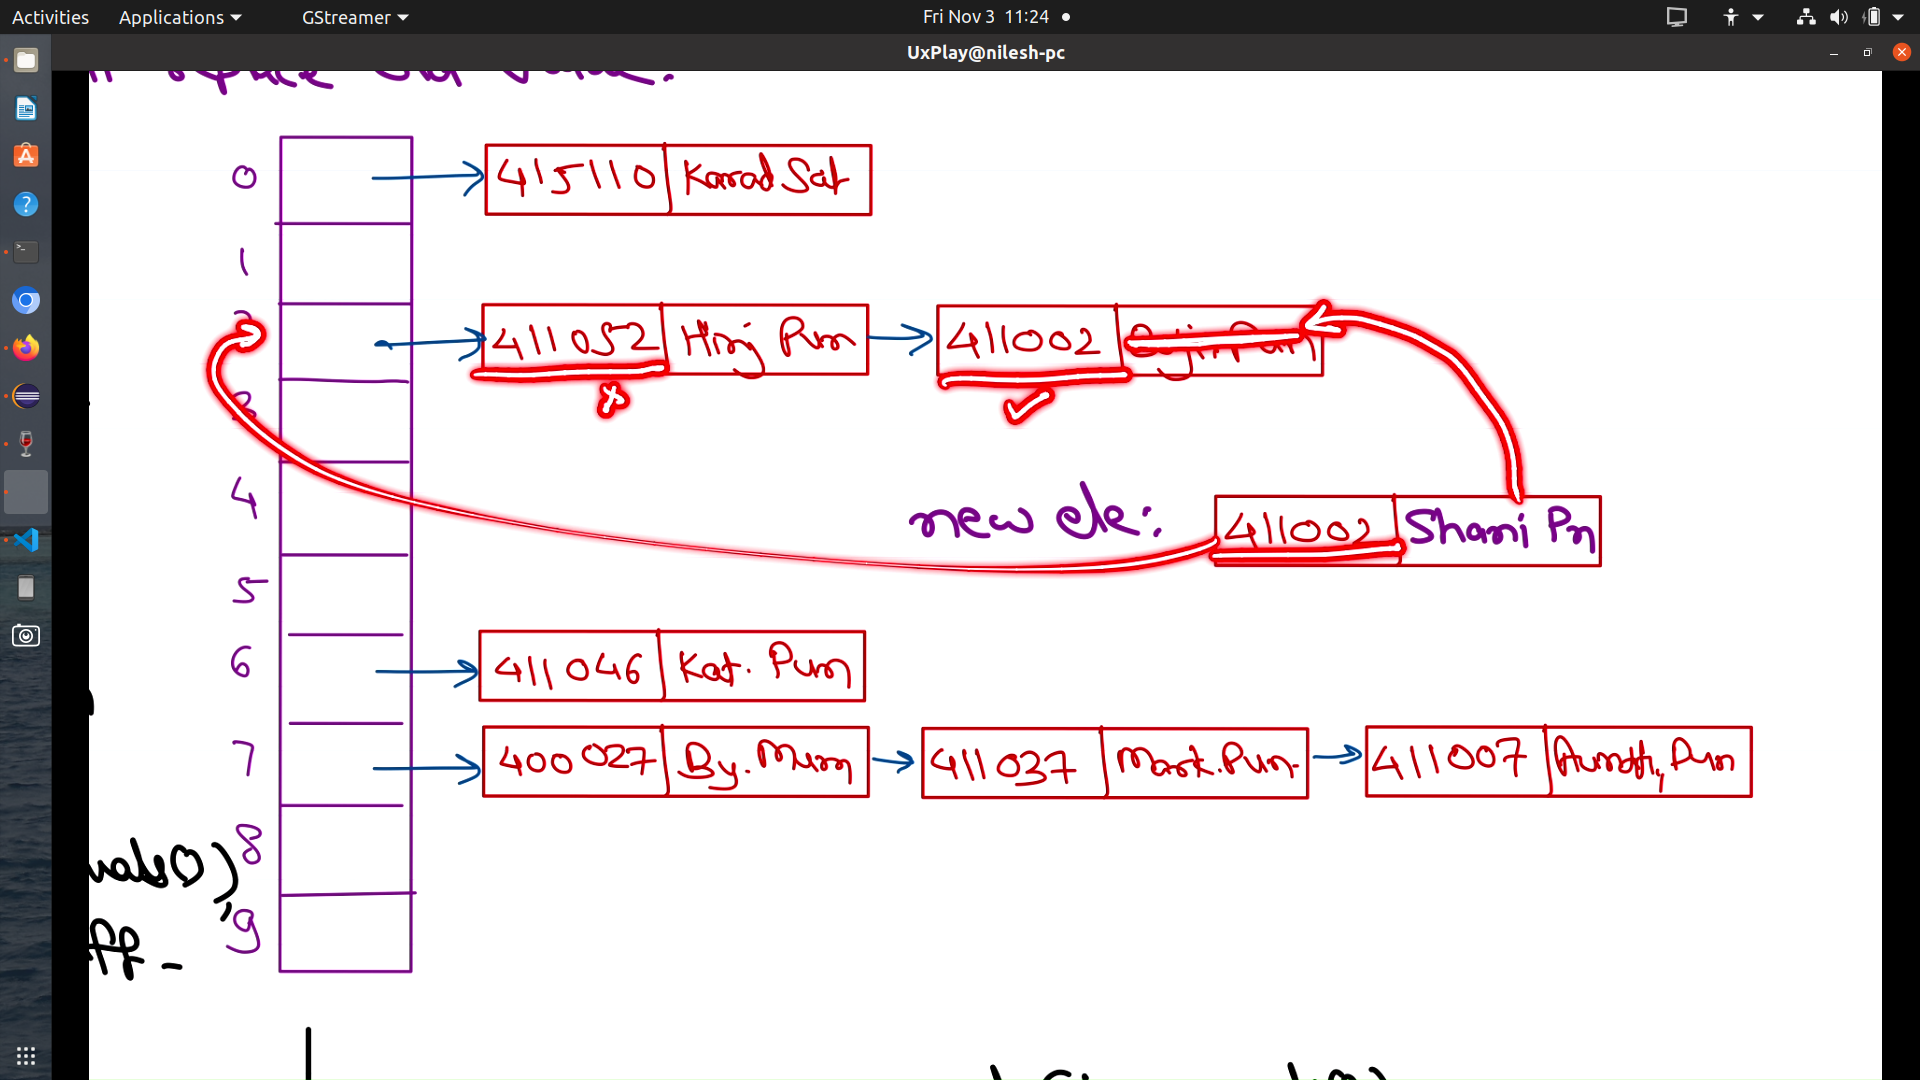 Activities Applications GStreamer Fri Nov 3 11:24
UxPlay@nilesh-pc
0 415110 Karad Sat
1
2 411052 Hinj Pun 411002
4
new ele: 411002 Shani Pn
5
6 411046 Kat. Pun
7 400027 By. Mum 411037 Mark. Pun. 411007 Pun
8
9